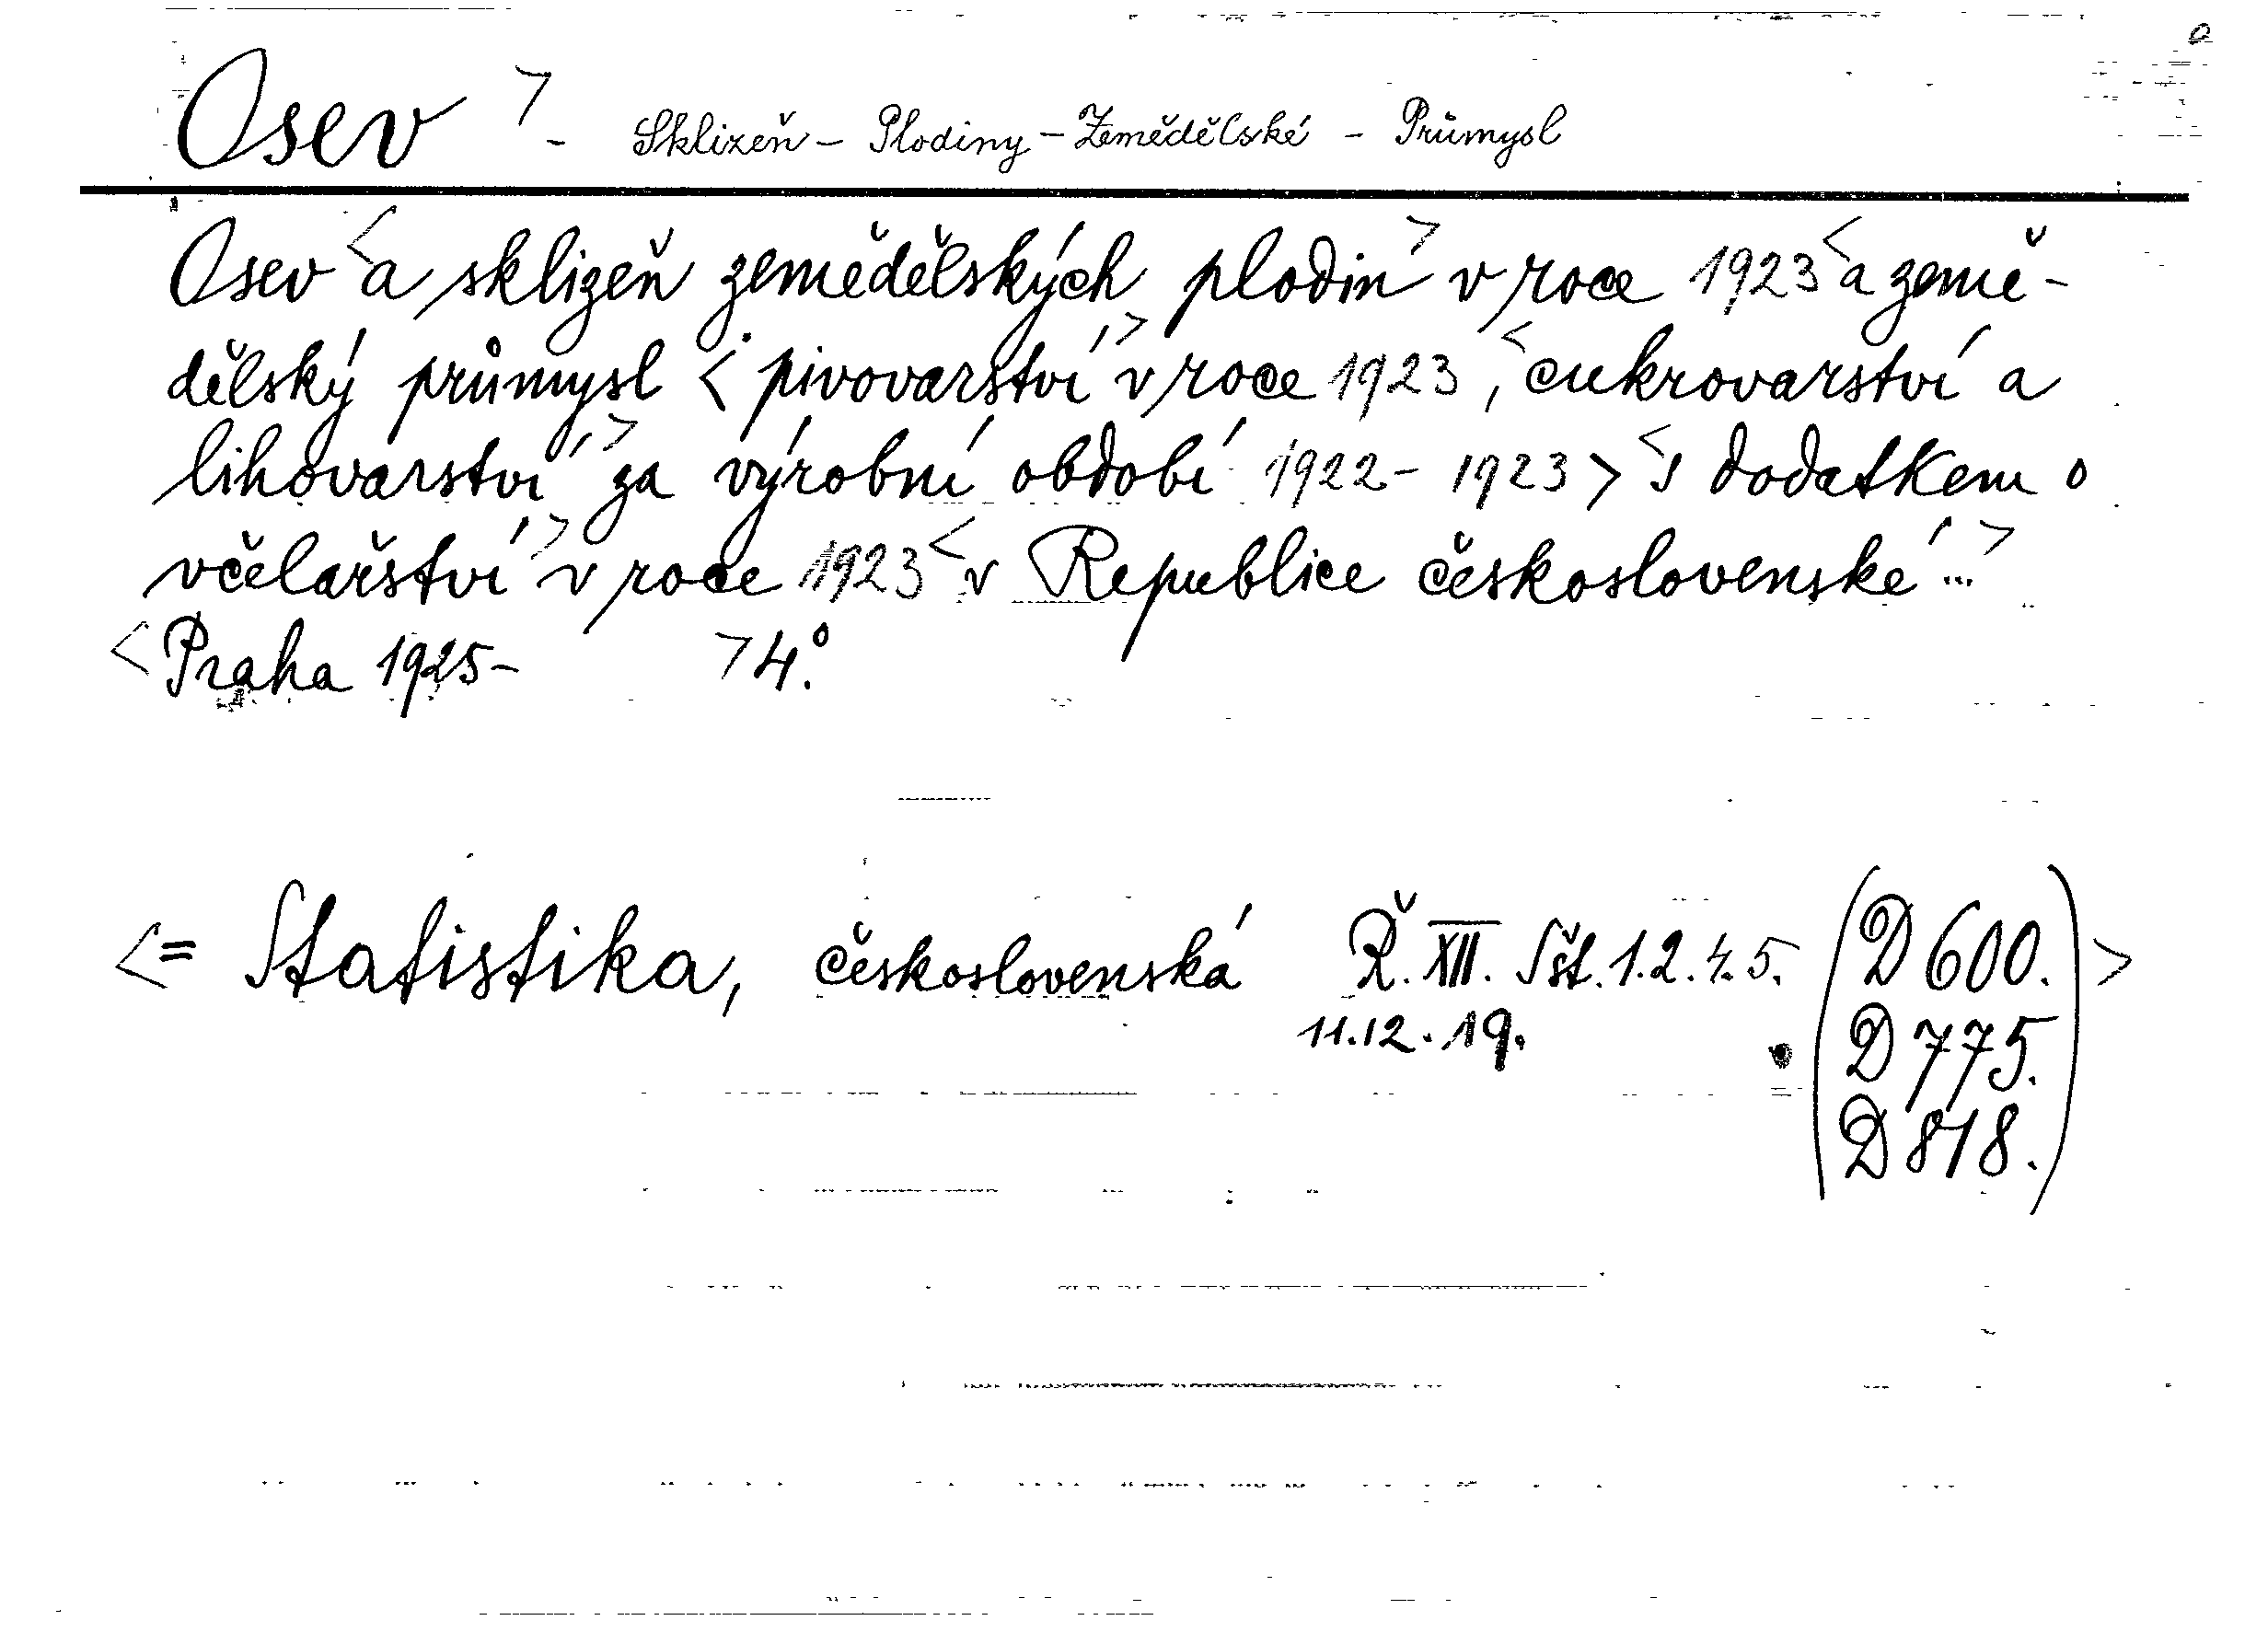 Osev > - Sklizeň - Plodiny - Zemědělské - Průmysl
Osev < a sklizeň zemědělských plodin > v roce 1923 < a země-
dělský průmysl < pivovarství > v roce 1923, < cukrovarství a
lihovarství > za výrobní období 1922 - 1923 > < s dodatkem o
včelařství > v roce 1923 < v Republice československé ... >
< Praha 1925 - > 4.°
<= Statistika, československá Ř. XII. Sšt. 1. 2. 4. 5. (D 600.) >
11. 12. 19. D 775.
D 818.